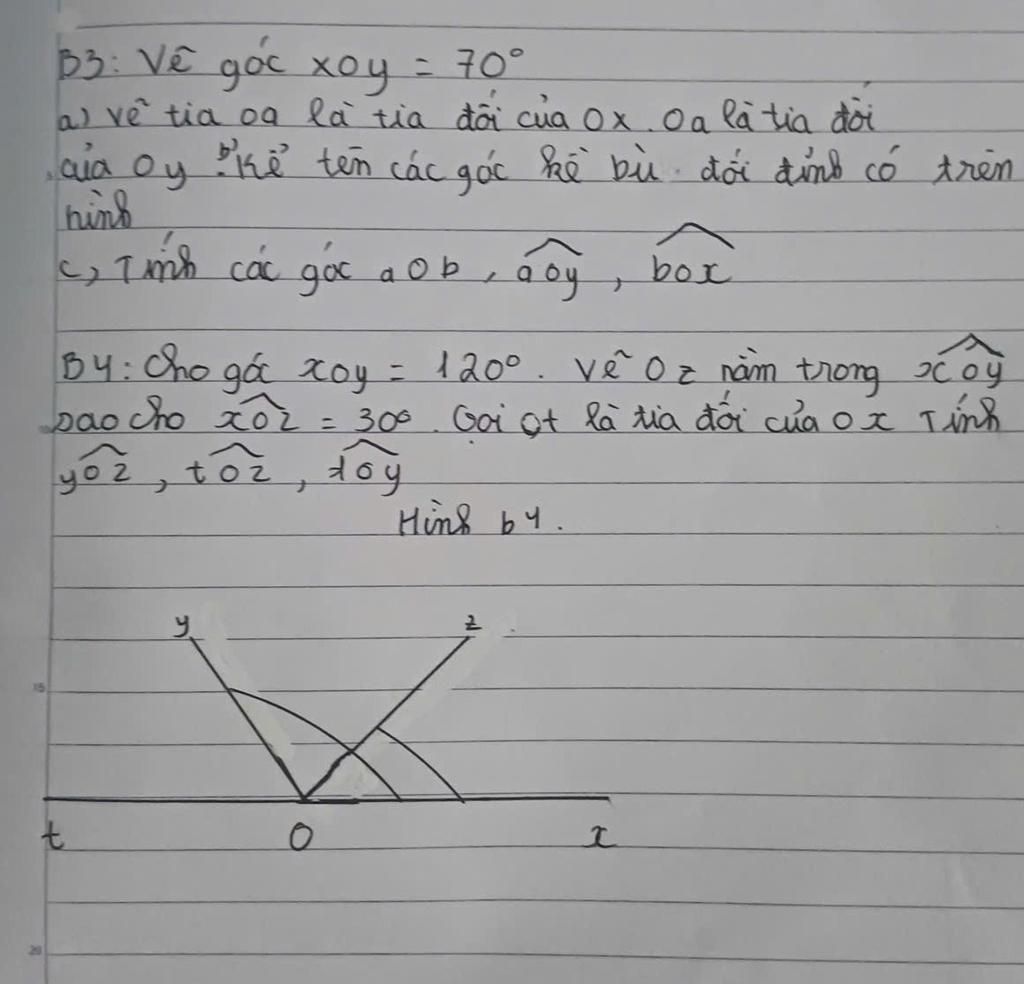 B3: Vẽ góc xOy = 70°
a) vẽ tia Oa là tia đối của Ox. Oa là tia đối
của Oy b, Kể tên các góc kề bù. đối đỉnh có trên
hình
c, Tính các góc aOb, aOy, bOx
B4: Cho góc xOy = 120°. Vẽ Oz nằm trong xOy
sao cho xOz = 30°. Gọi Ot là tia đối của Ox Tính
yOz, tOz, tOy
Hình b4.
y z
t O x
15
20